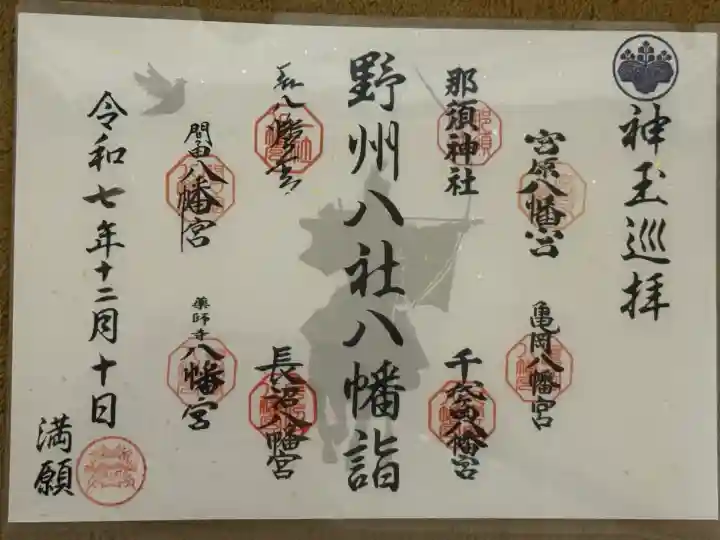 神玉巡拝
宮原八幡宮
亀岡八幡宮
那須神社
八幡宮
野州八社八幡詣
八幡宮
長沼八幡宮
間々田八幡宮
薬師寺八幡宮
令和七年十二月十日
満願